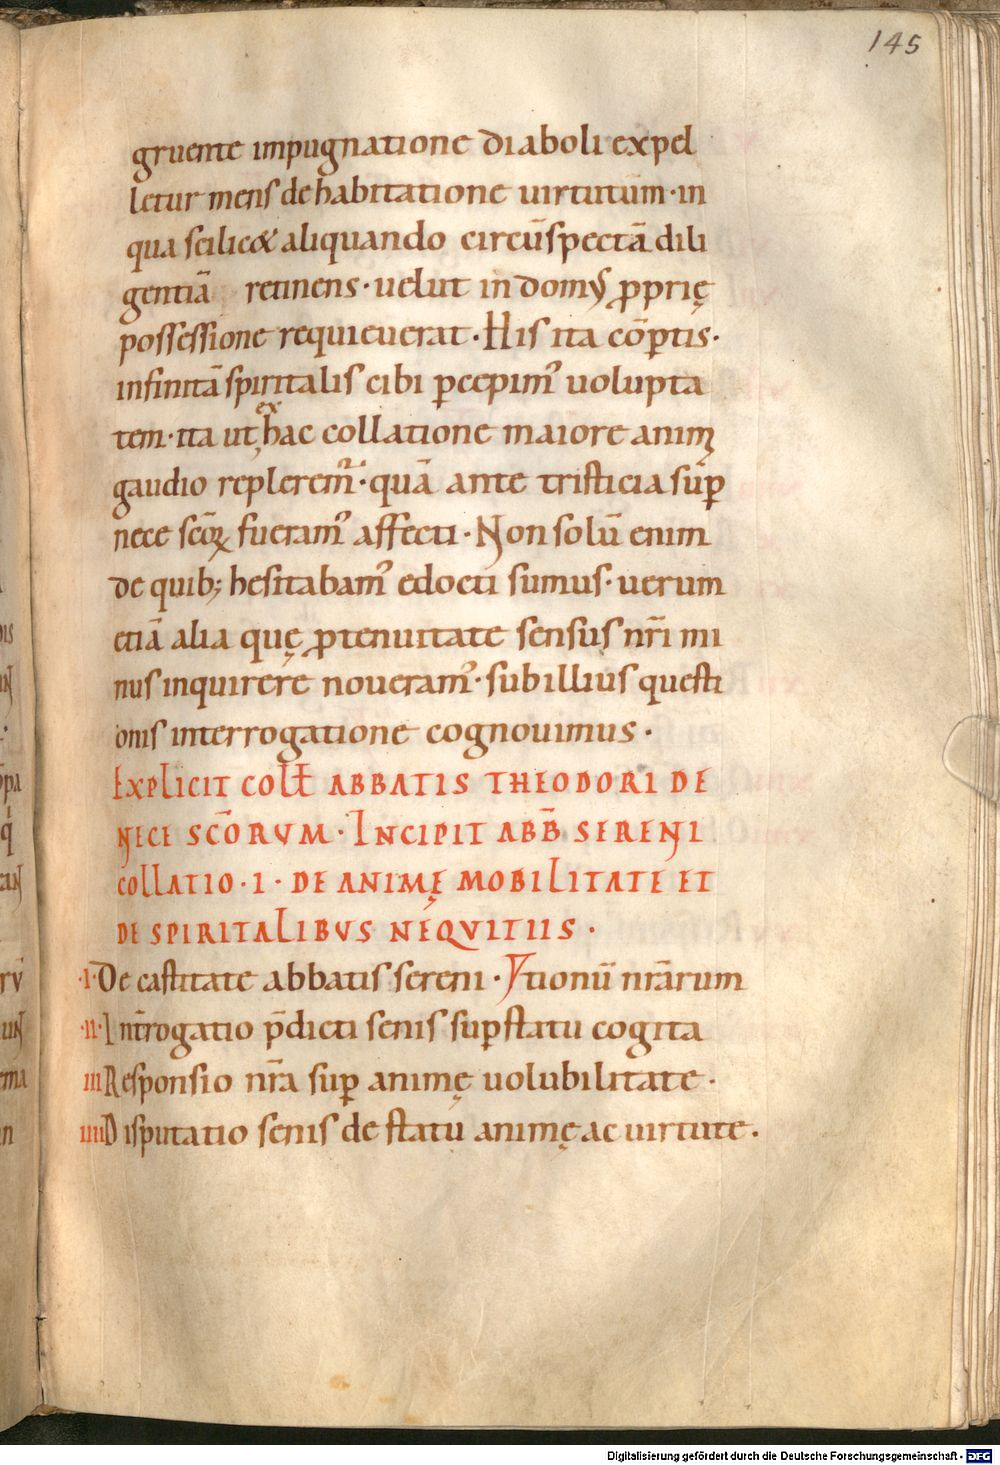 145
gruente impugnatione diaboli expel
letur mens de habitatione uirtutum · in
qua scilicet aliquando circū specta dili
gentiā retinens · uelut in domꝰ ꝓprię
possessione requieuerat · His ita cōꝑtis ·
infinitā spiritalis cibi ꝑcepimꝰ uolupta
tem · ita ut ex hac collatione maiore animi
gaudio repleremꝰ · quā ante tristicia suꝑ
nece scōꝝ fueramꝰ affecti · Non solū enim
de quib; hesitabamꝰ edocti sumus · uerum
etiā alia quę ꝓ tenuitate sensus nr̄i mi
nus inquirere noueramꝰ · sub illius questi
onis interrogatione cognouimus ·
EXPLICIT COLL̄ ABBATIS THEODORI DE
NECE SCŌRVM · INCIPIT ABB̄ SERENI
COLLATIO · I · DE ANIMĘ MOBILITATE ET
DE SPIRITALIBVS NEQVITIIS ·
· I · De castitate abbatis sereni · tionū nr̄arum
· II · Int̄rogatio p̄dicti senis suꝑ statu cogita
III Responsio nr̄a suꝑ animę uolubilitate ·
IIII Disputatio senis de statu animę ac uirtute ·
Digitalisierung gefördert durch die Deutsche Forschungsgemeinschaft - DFG